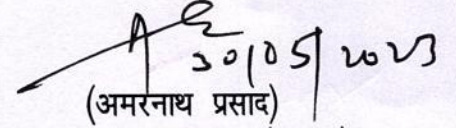 30/05/2023
(अमरनाथ प्रसाद)